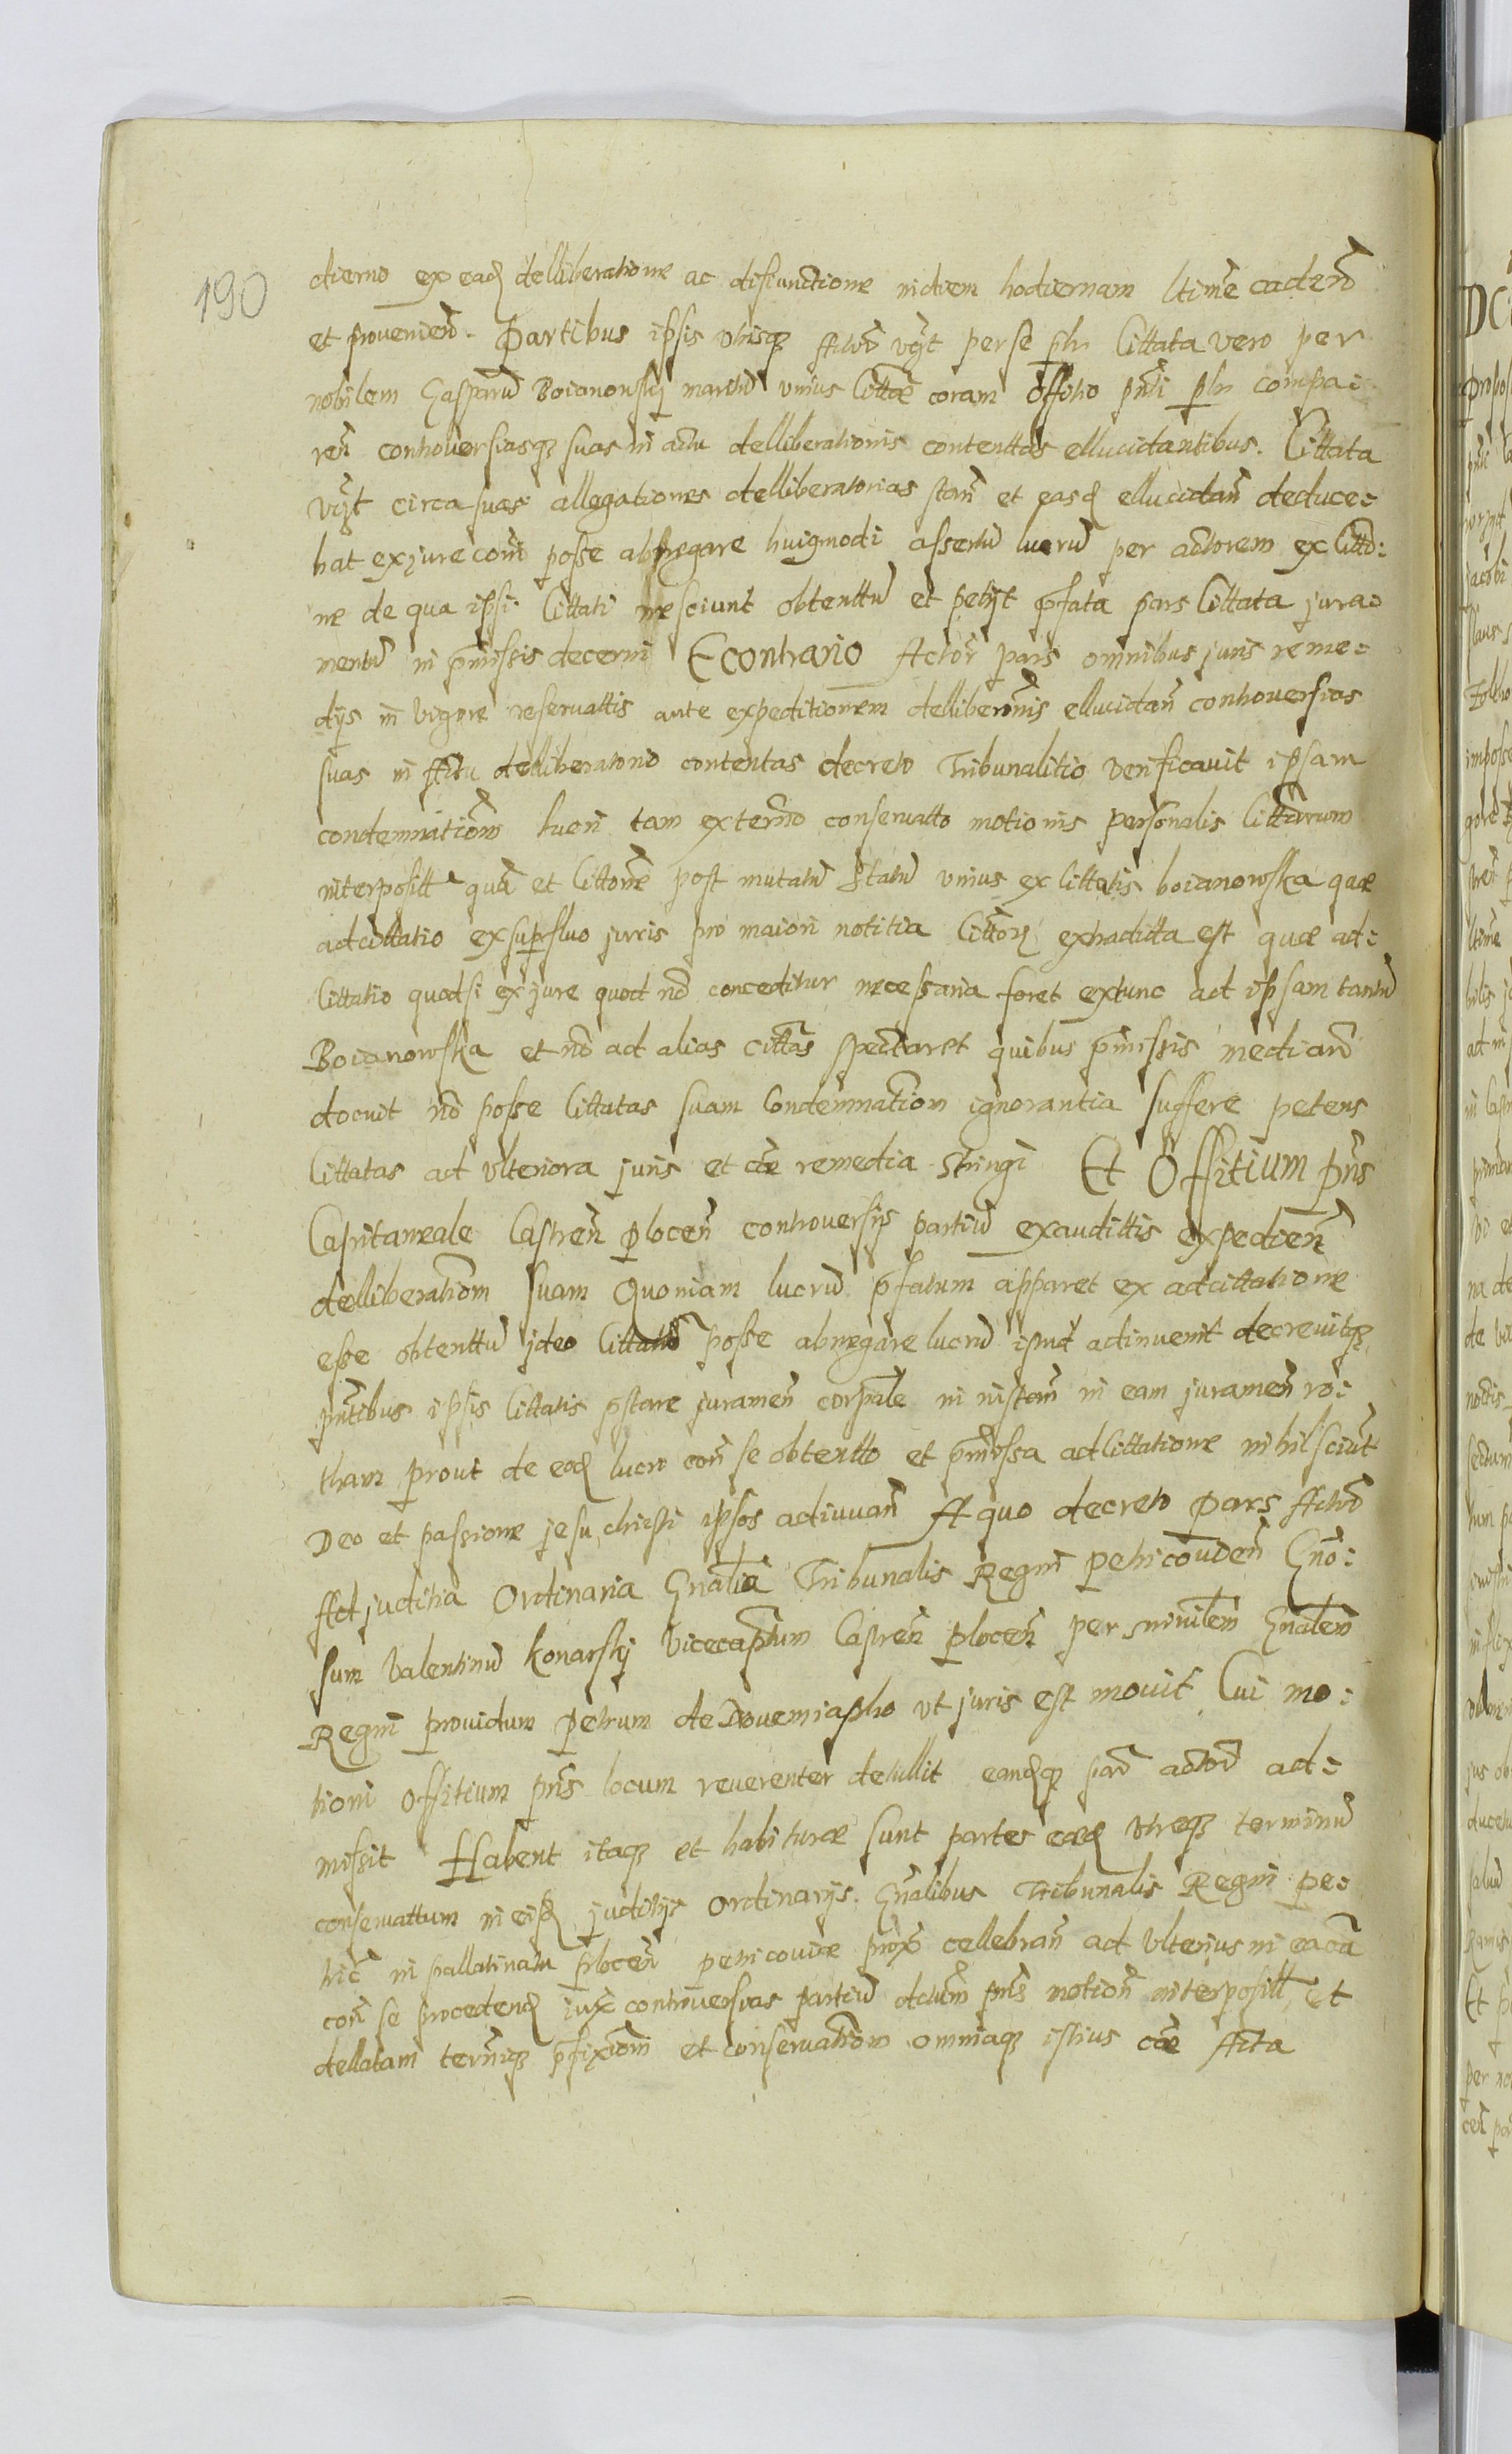 190
dierno ex eadꝫ delliberatione ac disiunctione in diem hodiernam ltime cadeñ
et provenieñ. Partibus ipsis utrisqꝫ Actorē vꝫt per se ipm Cittata vero per
nobilem Gasparū Boianowskÿ maritū unius Cittatæ coram Offitio pnti ptr compa:
reñ controversiasqꝫ suas in actu delliberationis contenttas ellucidantibus. Cittata
vꝫt circa suas allegationes delliberatorias stañ et easdꝫ ellucidañ deduce:
bat ex jure coñi posse abnegare huigmodi assertū lucrū per actorem ex Citto:
ne de qua ipsi Cittati nesciunt obtenttū et petijt pfata pars Cittata jura:
mentū in pmissis decerni Econtrario Actorē pars omnibus juris reme:
dijs in vigore reservattis ante expeditionem delliberōnis ellucidañ controversias
suas in Actu delliberatorio contentas decreto Tribunalitio verificavit ipsam
condemnationem lucri tam ex termō conservatto motionis personalis Cittatarum
interposittæ quā et Cittone post mutatū statū unius ex Cittatis boianowska quæ
adcittatio ex superfluo juris pro maiori notitia Cittatorꝫ extradita est quæ ad:
Cittatio quodsi ex jure quod nō conceditur necessaria foret extunc ad ipsam tantū
Boianowska et nō ad alias Cittatas spectaret quibus pmissis mediañ
docuit nō posse Cittatas suam Condemnationem ignorantia suffere petens
Cittatas ad ulteriora juris et cæ remedia stringi Et Offitium pñs
Capitaneale Castreñ Ploceñ controversijs partiū exaudittis expedieñ
delliberationem suam Quoniam lucrū pfatum apparet ex adcittatione
esse obtenttū ideo Cittatos posse abnegare lucrū istud adinvenit decrevitqꝫ
pntibus ipsis Cittatis pstare jurameñ corpale in instañ in eam jurameñ ro:
tham prout de eodꝫ lucro coñ se obtentto et pmissa adcittatione nihil sciūt
Deo et passione jesu christi ipsos adiuvañ A quo decreto Pars Actorē
Ad juditia Ordinaria Gnalia Tribunalis Regni Petricovideñ Gno:
sum Valentinū Konarskÿ Vicecaptum Castreñ Ploceñ per mnrilem Gnalem
Regni providum Petrum de Drovemiastho ut juris est movit Cui mo:
tioni Offitium pñs locum reverenter detullit eandꝫqꝫ parti actoreæ ad:
missit Habent itaqꝫ et habituræ sunt partes eædꝫ utreqꝫ terminū
conservattum in eisdꝫ juditijs Ordinarijs Gnalibus Tribunalis Regni Pe:
tric in pallatinatu Ploceñ Petricoviæ prox cellebrañ ad ulterius in ea cā
coñ se procedendꝫ iuxꝭ controversias partiū dcrum pñs motionē interposittā et
dellatam terminiqꝫ pfixionem et conservationem omniaqꝫ istius cæ Acta